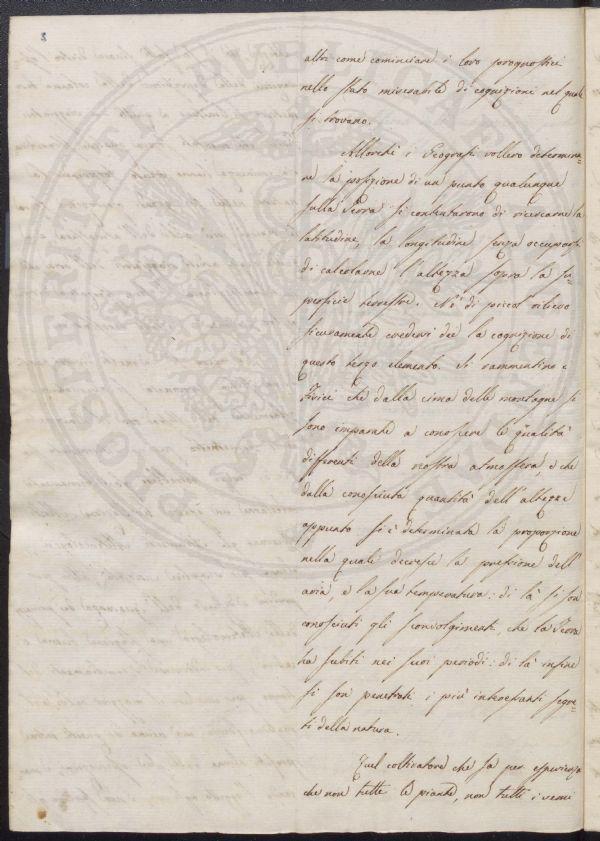 8
altri come cominciare i loro prognostici
nello stato miserabile di cognizioni nel quale
si trovano.
Allorchè i Geografi vollero determina-
re la posizione di un punto qualunque
sulla Terra si contentarono di ricercarne la
latitudine, la longitudine senza occuparsi
di calcolarne l'altezza sopra la su-
perficie terrestre. Nè di piccol rilievo
sicuramente credersi dee la cognizione di
questo terzo elemento. Si rammentino i
Fisici che dalla cima delle montagne si
sono imparate a conoscere le qualità
differenti della nostra atmosfera, e che
dalla conosciuta quantità dell'altezza
appunto si è determinata la proporzione
nella quale decresce la pressione dell'
aria, e la sua temperatura: di là si son
conosciuti gli sconvolgimenti, che la Terra
ha subiti nei suoi periodi: di là infine
si son penetrati i più interessanti segre-
ti della natura.
Quel coltivatore che sa per esperienza
che non tutte le piante, non tutti i semi